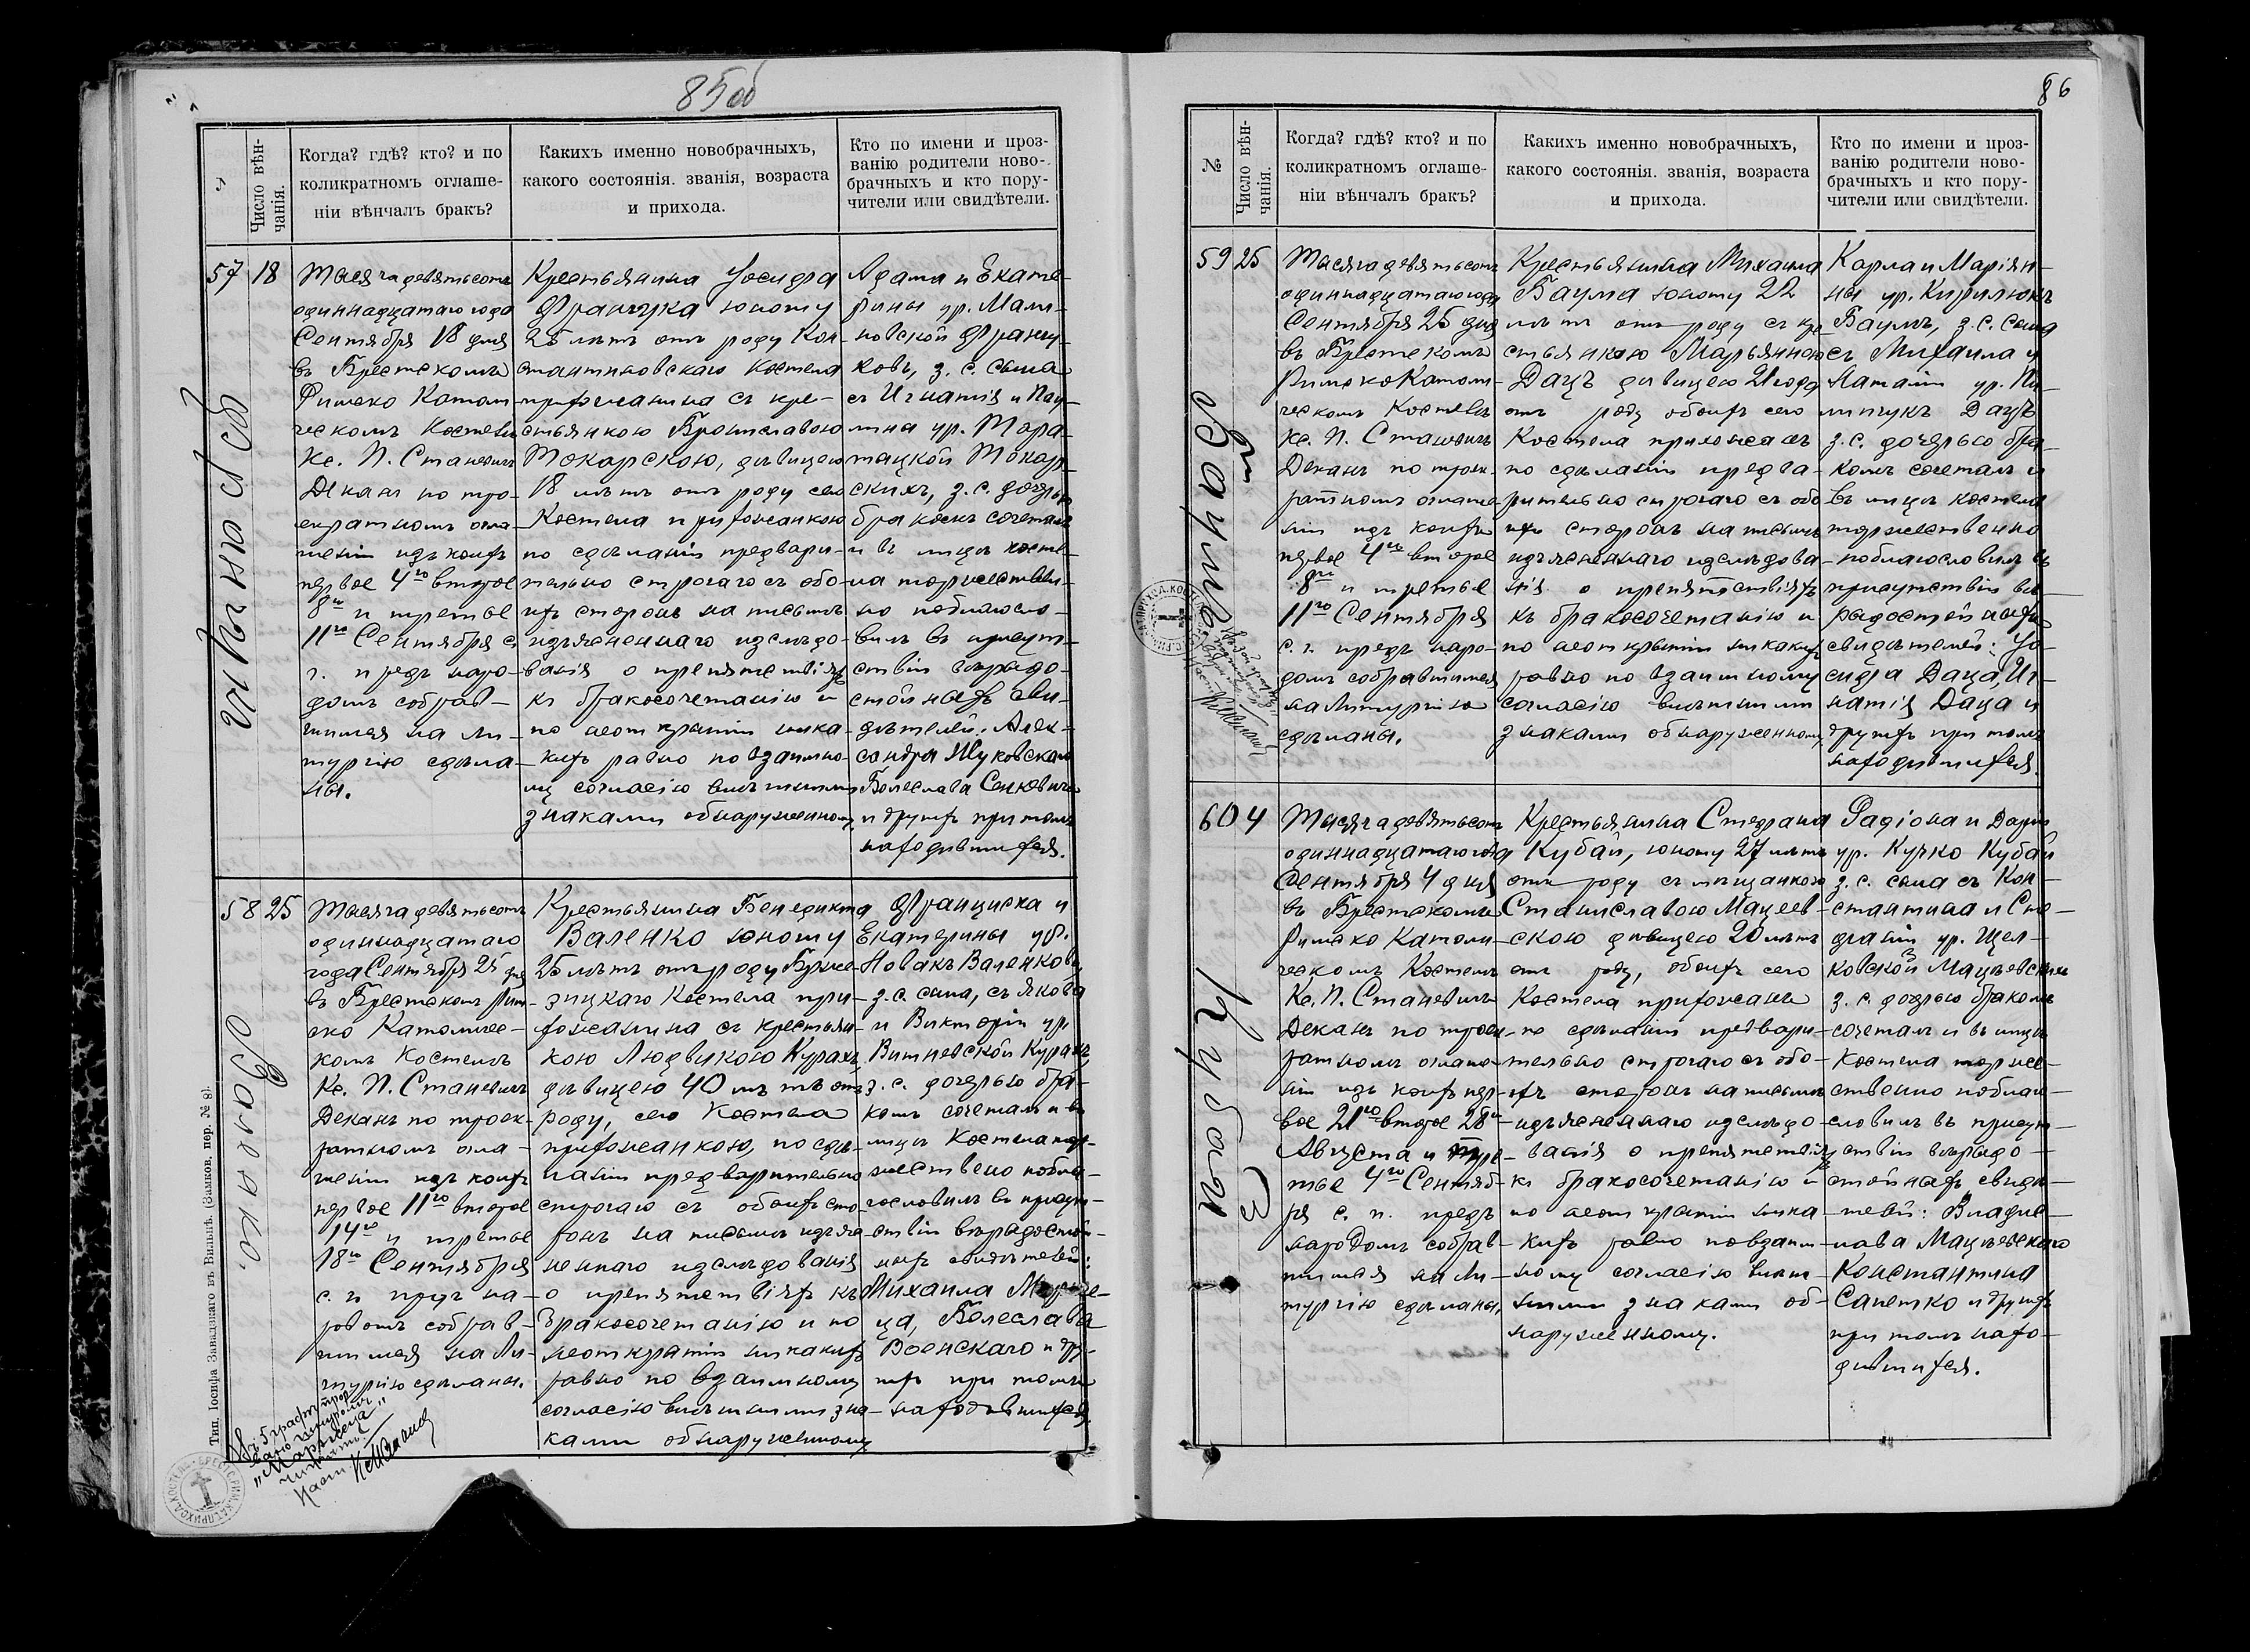 85 об
№
Число вѣн-
чанія.
Когда? гдѣ? кто? и по
коликратномъ оглаше-
ніи вѣнчалъ бракъ?
Какихъ именно новобрачныхъ,
какого состоянія. званія, возраста
и прихода.
Кто по имени и проз-
ванію родители ново-
брачныхъ и кто пору-
чители или свидѣтели.
57
18
Тысяча девятьсотъ
одиннадцатаго года
Сентября 18 дня
въ Брестскомъ
Римско Католи-
ческомъ Костелѣ
Кс. П. Станевичъ
Деканъ по трое-
кратномъ огла-
шеніи изъ коихъ
первое 4го второе
8го и третье
11го Сентября с.
г. предъ наро-
домъ собрав-
шимся на Ли-
тургію сдѣла-
ны.
Крестьянина Іосифа
Францука юношу
25 лѣтъ отъ роду Кон-
стантиновскаго Костела
прихожанина съ кре-
стьянкою Брониславою
Токарскою, дѣвицею
18 лѣтъ отъ роду сего
Костела прихожанкою
по сдѣланіи предвари-
тельно строгаго съ обо-
ихъ сторонъ на письмѣ
изъясненнаго изслѣдо-
ванія о препятствіяхъ
къ бракосочетанію и
по неоткрытіи ника-
кихъ равно по взаимно-
му согласію внѣшними
знаками обнаруженному,
Адама и Екате-
рины ур. Мали-
новской Францу-
ковъ, з. с. сына
съ Игнатія и Пау-
лины ур.
Токар-
скихъ, з. с. дочерью
бракомъ сочеталъ
и въ лицѣ косте-
ла торжествен-
но поблагосло-
вилъ въ присут-
ствіи вѣрыдо-
стойныхъ сви-
дѣтелей: Алек-
сандра Жуковскаго
Болеслава Сенкевича
и другихъ при томъ
находившихся.
58
25
Валенко.
Тысяча девятьсотъ
одиннадцатаго
года Сентября 25 дня
въ Брестскомъ Рим-
ско Католичес-
комъ Костелѣ
Кс. П. Станевичъ
Деканъ по троек-
ратномъ огла-
шеніи изъ коихъ
первое 11го второе
14го и третье
18го Сентября
с. г. предъ на-
родомъ собрав-
шимся на Ли-
тургію сдѣланы.
Крестьянина Бенедикта
Валенко юношу
25 лѣтъ отъ роду
Костела при-
хожанина съ крестьян-
кою Людвикою Курахъ,
дѣвицею 40 лѣтъ отъ
роду, сего Костела
прихожанкою, по сдѣ-
ланіи предварительно
строгаго съ обоихъ сто-
ронъ на письмѣ изъяс-
неннаго изслѣдованія
о препятствіяхъ къ
бракосочетанію и по
неоткрытіи никакихъ
равно по взаимному
согласію внѣшними зна-
ками обнаруженному
Франциска и
Екатерины ур.
Новакъ Валенковъ,
з. с. сына, съ Якова
и Викторіи ур.
Вишневской Курахъ,
з. с. дочерью бра-
комъ сочеталъ и въ
лицѣ Костела тор-
жествено побла-
гословилъ въ присут-
ствіи вѣрыдостой-
ныхъ свидѣтелей:
Михаила
Болеслава
Военскаго и дру-
гихъ при томъ
находившихся.
Тип. Іосифа Завадзкаго въ Вильнѣ. (Замков. пер. № 8).
86
№
Число вѣн-
чанія.
Когда? гдѣ? кто? и по
коликратномъ оглаше-
ніи вѣнчалъ бракъ?
Какихъ именно новобрачныхъ,
какого состоянія. званія, возраста
и прихода.
Кто по имени и проз-
ванію родители ново-
брачныхъ и кто пору-
чители или свидѣтели.
59
25
Баумъ
Тысяча девятьсотъ
одиннадцатаго года
Сентября 25 дня
въ Брестскомъ
Римско Католи-
ческомъ Костелѣ
Кс. П. Станевичъ
Деканъ по троек-
ратномъ оглаше-
ніи изъ коихъ
первое 4го второе
8го и третье
11го Сентября
с. г. предъ наро-
домъ собравшимся
на Литургію
сдѣланы.
Крестьянина Михаила
Баума юношу 22
лѣтъ отъ роду съ кре-
стьянкою Марьянною
Дацъ дѣвицею 21 года
отъ роду обоихъ сего
Костела прихожанъ
по сдѣланіи предва-
рительно строгаго съ обо-
ихъ сторонъ на письмѣ
изъясненнаго изслѣдова-
нія о препятствіяхъ
къ бракосочетанію и
по неоткрытіи никакихъ
равно по взаимному
согласію внѣшними
знаками обнаруженному,
Карла и Маріян-
ны ур. Кирилюкъ
Баумъ, з. с. сына
съ Михаила и
Наталіи ур. Пи-
липчукъ Дацъ
з. с. дочерью бра-
комъ сочеталъ и
въ лицѣ костела
торжественно
поблагословилъ въ
присутствіи вѣ-
рыдостойныхъ
свидѣтелей: Іо-
сифа Даца, Иг-
натія Даца и
другихъ при томъ
находившихся.
60
4
Кубай
Тысяча девятьсотъ
одиннадцатаго года
Сентября 4 дня
въ Брестскомъ
Римско Католи-
ческомъ Костелѣ
Кс. П. Станевичъ
Деканъ по троек-
ратномъ оглаше-
ніи изъ коихъ пер-
вое 21го второе 28го
Августа и тре-
тье 4го Сентяб-
ря с. г. предъ
народомъ собрав-
шимся на Ли-
тургію сдѣланы,
Крестьянина Стефана
Кубай, юношу 27 лѣтъ
отъ роду съ мѣщанкою
Станиславою Мацеев-
скою дѣвицею 20 лѣтъ
отъ роду, обоихъ сего
Костела прихожанъ
по сдѣланіи предвари-
тельно строгаго съ обо-
ихъ сторонъ на письмѣ
изъясненнаго изслѣдо-
ванія о препятствіяхъ
къ бракосочетанію и
по неоткрытіи ника-
кихъ равно по взаим-
ному согласію внѣш-
ними знаками об-
наруженному.
Радіона и Даріи
ур. Кучко Кубай
з. с. сына съ Кон-
стантина и Сте-
фаніи ур. Щел-
ковской Мацѣевскихъ
з. с. дочерью бракомъ
сочеталъ и въ лицѣ
Костела торже-
ственно поблаго-
словилъ въ присут-
ствіи вѣрыдо-
стойныхъ свидѣ-
телей: Владис-
лава Мацѣевскаго
Константина
Сапетко и другихъ
при томъ нахо-
дившихся.